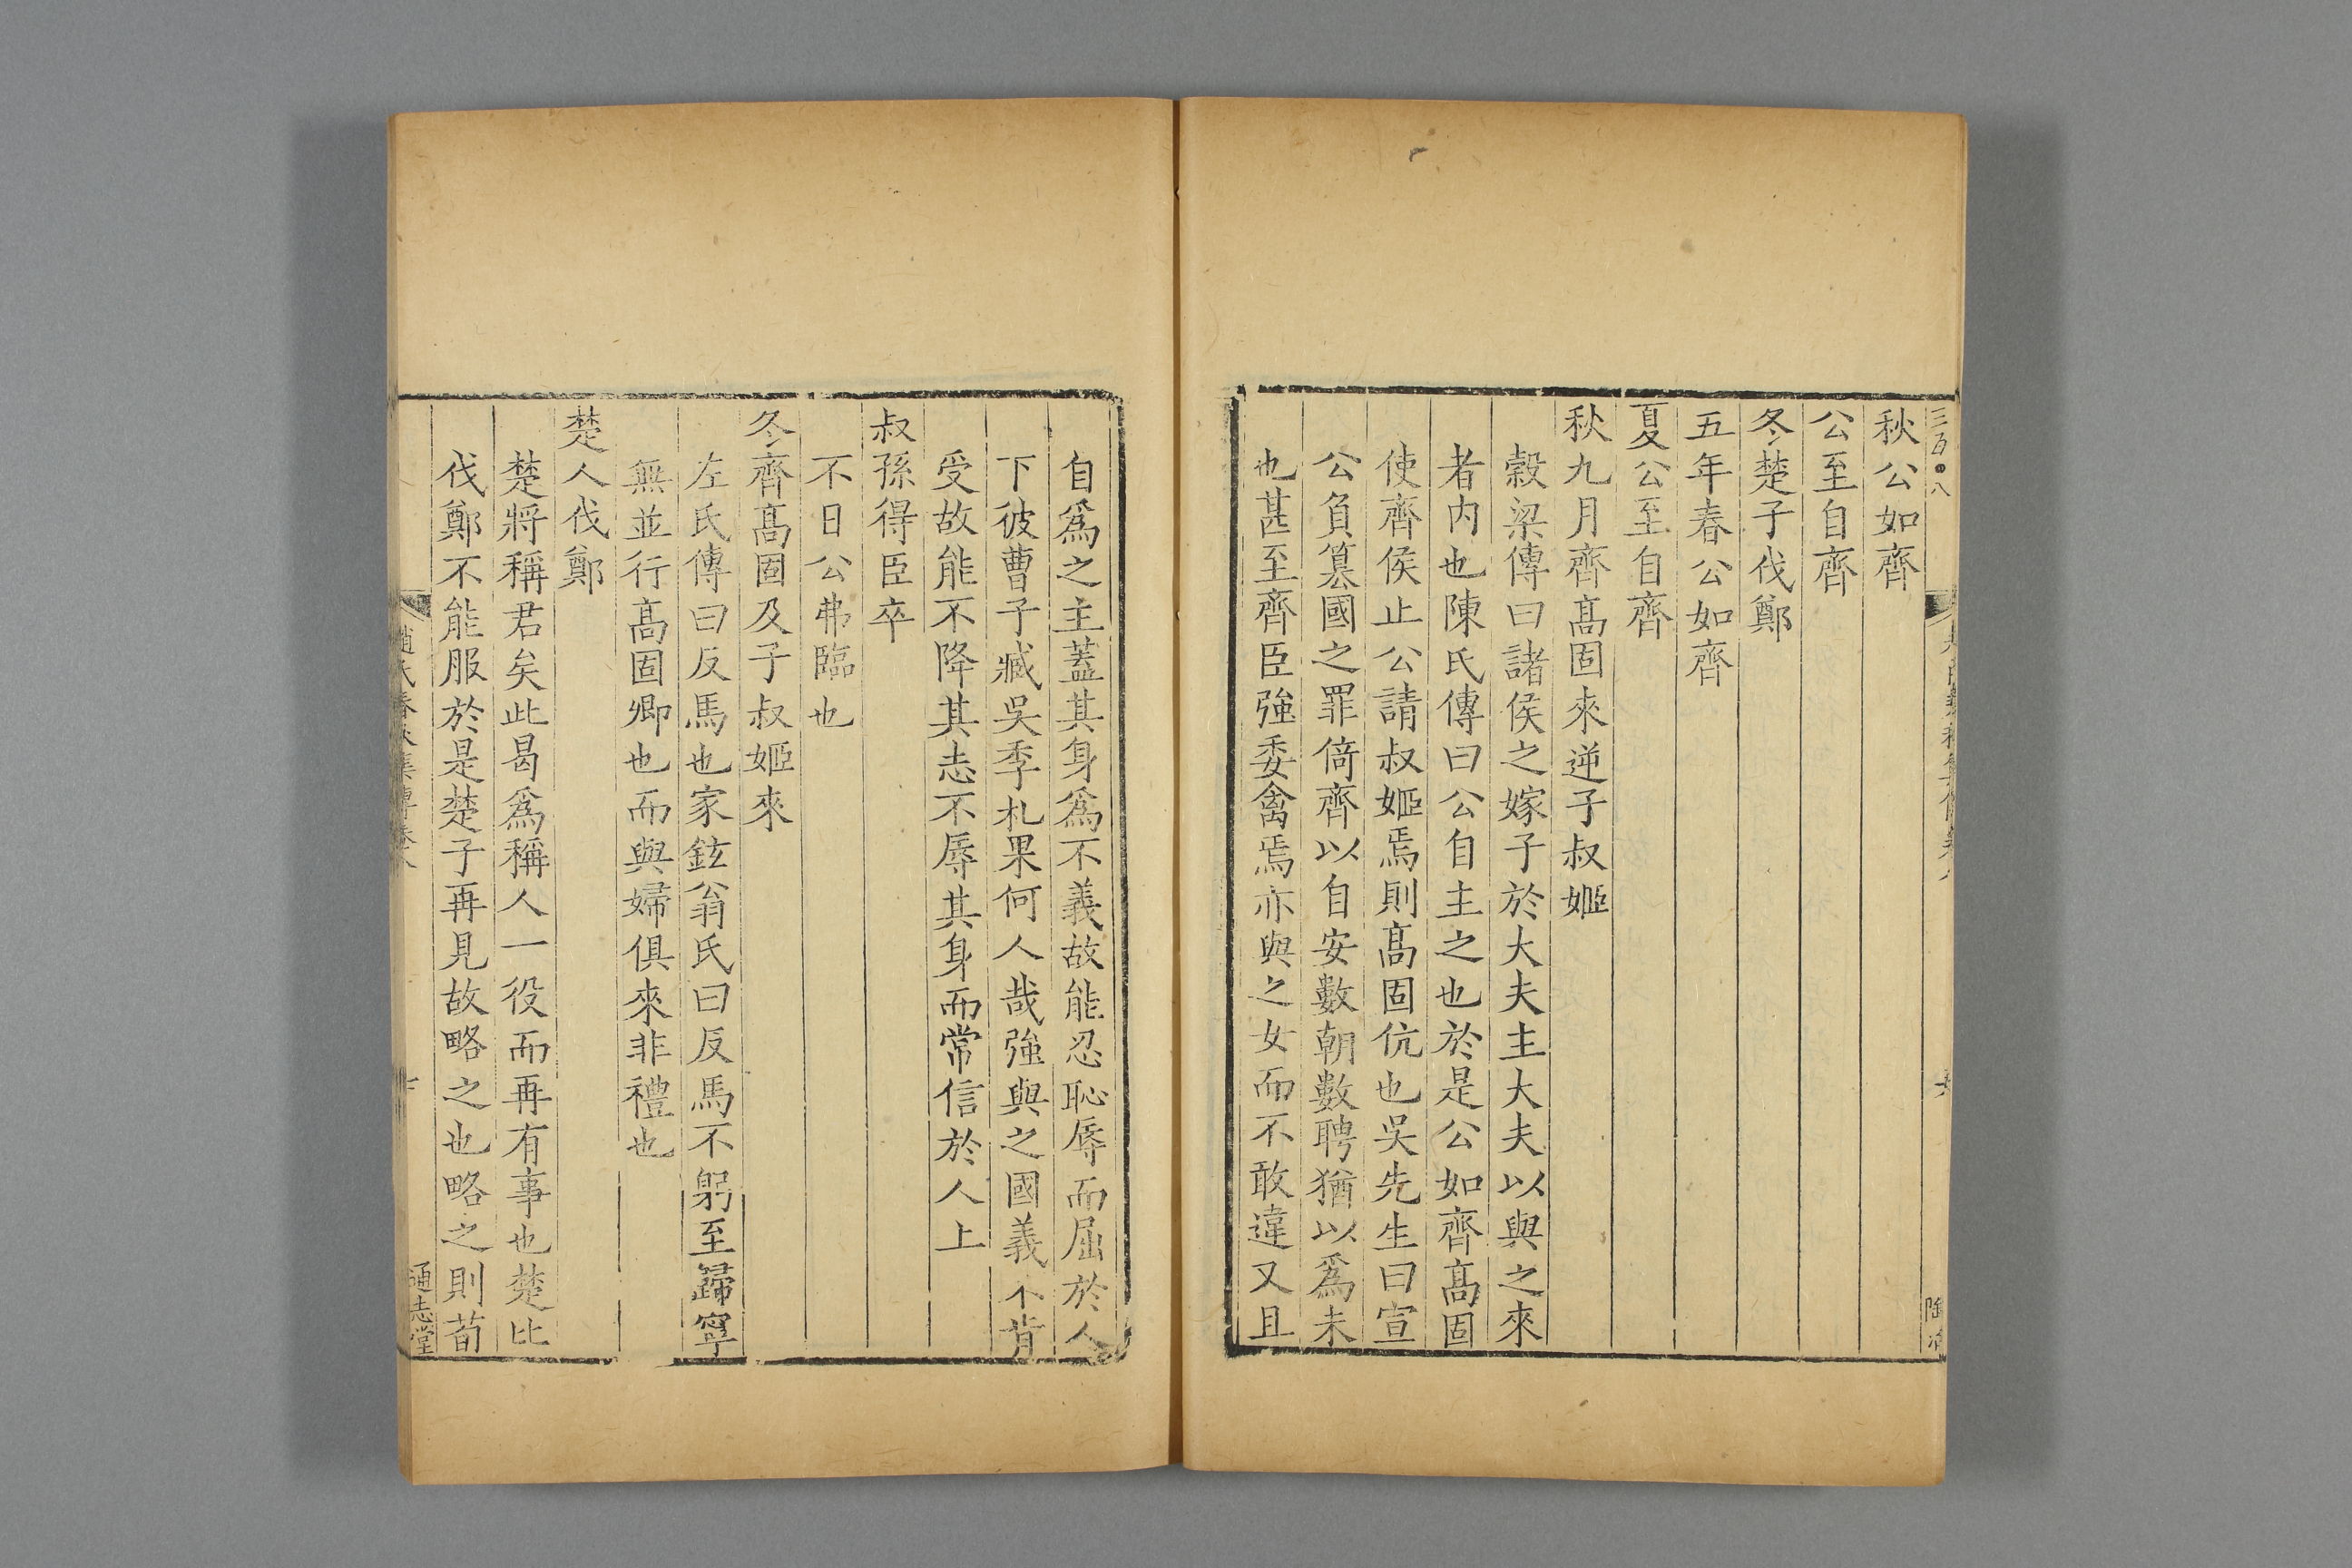 三百八
秋公如齊
公至自齊
冬楚子伐鄭
五年春公如齊
夏公至自齊
秋九月齊髙固來逆子叔姬
穀梁傳曰諸侯之嫁子於大夫主大夫以與之來
者内也陳氏傳曰公自主之也於是公如齊髙固
使齊侯止公請叔姬焉則髙固伉也吳先生曰宣
公負篡國之罪倚齊以自安數朝數聘猶以爲未
也甚至齊臣強委禽焉亦與之女而不敢違又且
自爲之主蓋其身爲不義故能忍恥辱而屈於人
下彼曹子臧吳季札果何人哉強與之國義不肯
受故能不降其志不辱其身而常信於人上
叔孫得臣卒
不日公弗臨也
冬齊髙固及子叔姬來
左氏傳曰反馬也家鉉翁氏曰反馬不躬至歸寧
無並行髙固卿也而與婦俱來非禮也
楚人伐鄭
楚將稱君矣此曷爲稱人一役而再有事也楚比
伐鄭不能服於是楚子再見故略之也略之則荀
趙氏春秋集傳卷八
通志堂